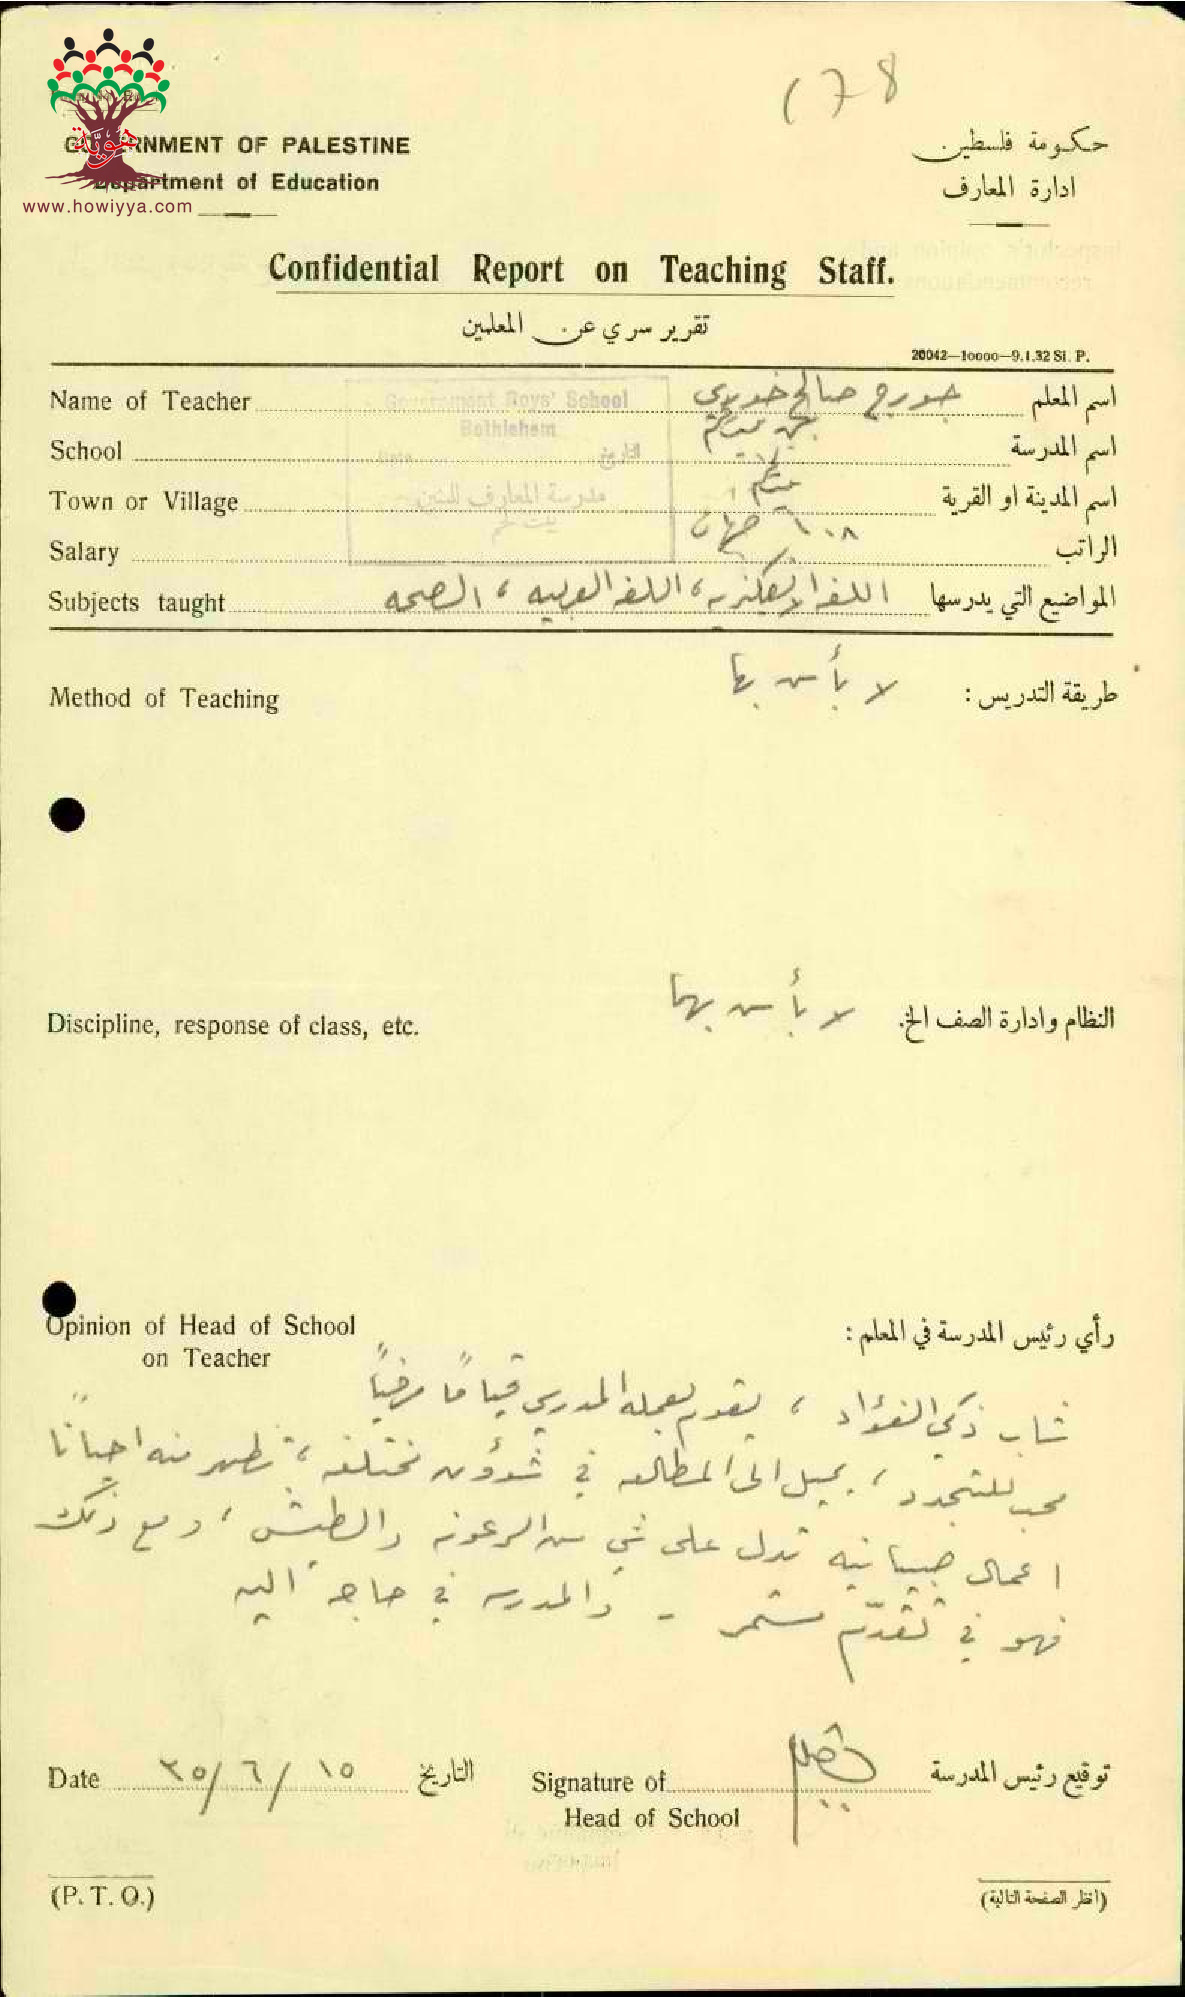 178
هويّة
www.howiyya.com
GOVERNMENT OF PALESTINE
حكومة فلسطين
Department of Education
ادارة المعارف
Confidential Report on Teaching Staff.
تقرير سري عن المعلمين
20042—10000—9.1.32 Si. P.
Name of Teacher جورج صالح خوري اسم المعلم
Government Boys' School
Bethlehem
School بيت لحم اسم المدرسة
Date التاريخ
Town or Village بيت لحم اسم المدينة او القرية
مدرسة المعارف للبنين
بيت لحم
Salary ١٠٨ الراتب
Subjects taught اللغه الانكليزيه، اللغه العربيه، الصحه المواضيع التي يدرسها
Method of Teaching لا بأس بها طريقة التدريس :
Discipline, response of class, etc. لا بأس بهما النظام وادارة الصف الخ.
Opinion of Head of School
on Teacher
رأي رئيس المدرسة في المعلم :
شاب ذكي الفؤاد ، يقوم بعمله المدرسي قياماً مرضياً
محب للتجدد ، يميل الى المطالعه في شؤون مختلفه ، تظهر منه احياناً
اعمال صبيانيه تدل على شي من الرعونه والطيش ، ومع ذلك
فهو في تقدّم مستمر - والمدرسه في حاجة اليه
Date ١٥/٦/٣٥ التاريخ
Signature of توقيع رئيس المدرسة
Head of School
(P. T. O.)
(انظر الصفحة التالية)